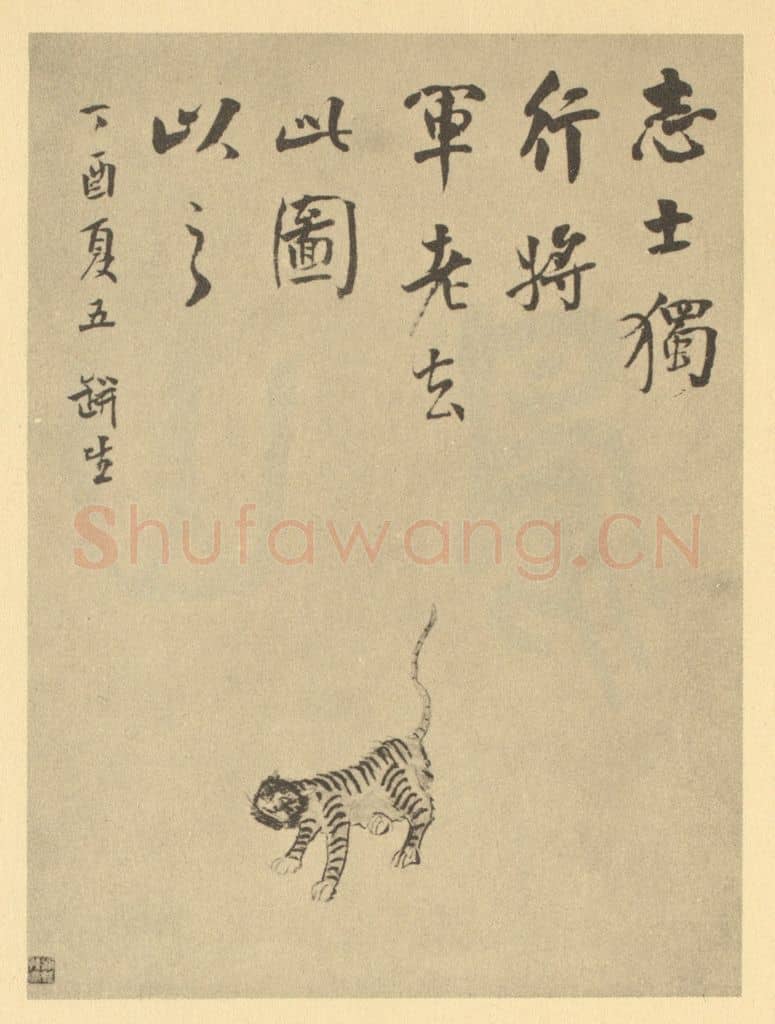 志士獨
行將
軍老去
此圖
以之
丁酉夏五 缾生
Shufawang.CN